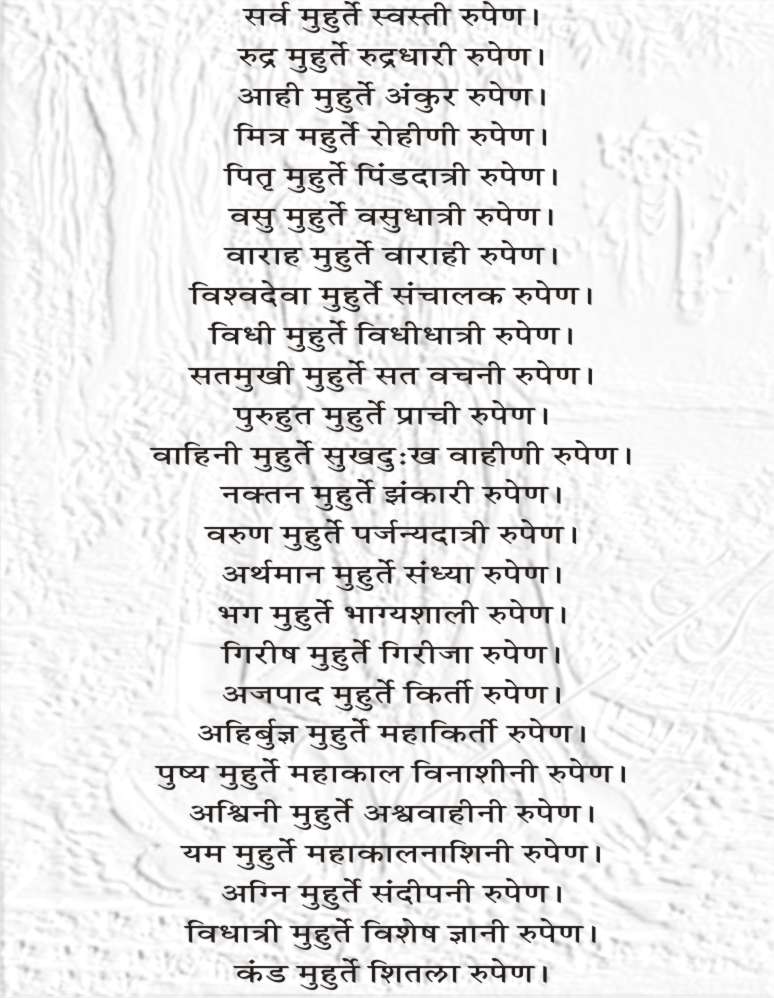 सर्व मुहुर्ते स्वस्ती रुपेण।
रुद्र मुहुर्ते रुद्रधारी रुपेण।
आही मुहुर्ते अंकुर रुपेण।
मित्र महुर्ते रोहीणी रुपेण।
पितृ मुहुर्ते पिंडदात्री रुपेण।
वसु मुहुर्ते वसुधात्री रुपेण।
वाराह मुहुर्ते वाराही रुपेण।
विश्वदेवा मुहुर्ते संचालक रुपेण।
विधी मुहुर्ते विधीधात्री रुपेण।
सतमुखी मुहुर्ते सत वचनी रुपेण।
पुरुहुत मुहुर्ते प्राची रुपेण।
वाहिनी मुहुर्ते सुखदुःख वाहीणी रुपेण।
नक्तन मुहुर्ते झंकारी रुपेण।
वरुण मुहुर्ते पर्जन्यदात्री रुपेण।
अर्थमान मुहुर्ते संध्या रुपेण।
भग मुहुर्ते भाग्यशाली रुपेण।
गिरीष मुहुर्ते गिरीजा रुपेण।
अजपाद मुहुर्ते किर्ती रुपेण।
अहिर्बुज्ञ मुहुर्ते महाकिर्ती रुपेण।
पुष्य मुहुर्ते महाकाल विनाशीनी रुपेण।
अश्विनी मुहुर्ते अश्ववाहीनी रुपेण।
यम मुहुर्ते महाकालनाशिनी रुपेण।
अग्नि मुहुर्ते संदीपनी रुपेण।
विधात्री मुहुर्ते विशेष ज्ञानी रुपेण।
कंड मुहुर्ते शितला रुपेण।